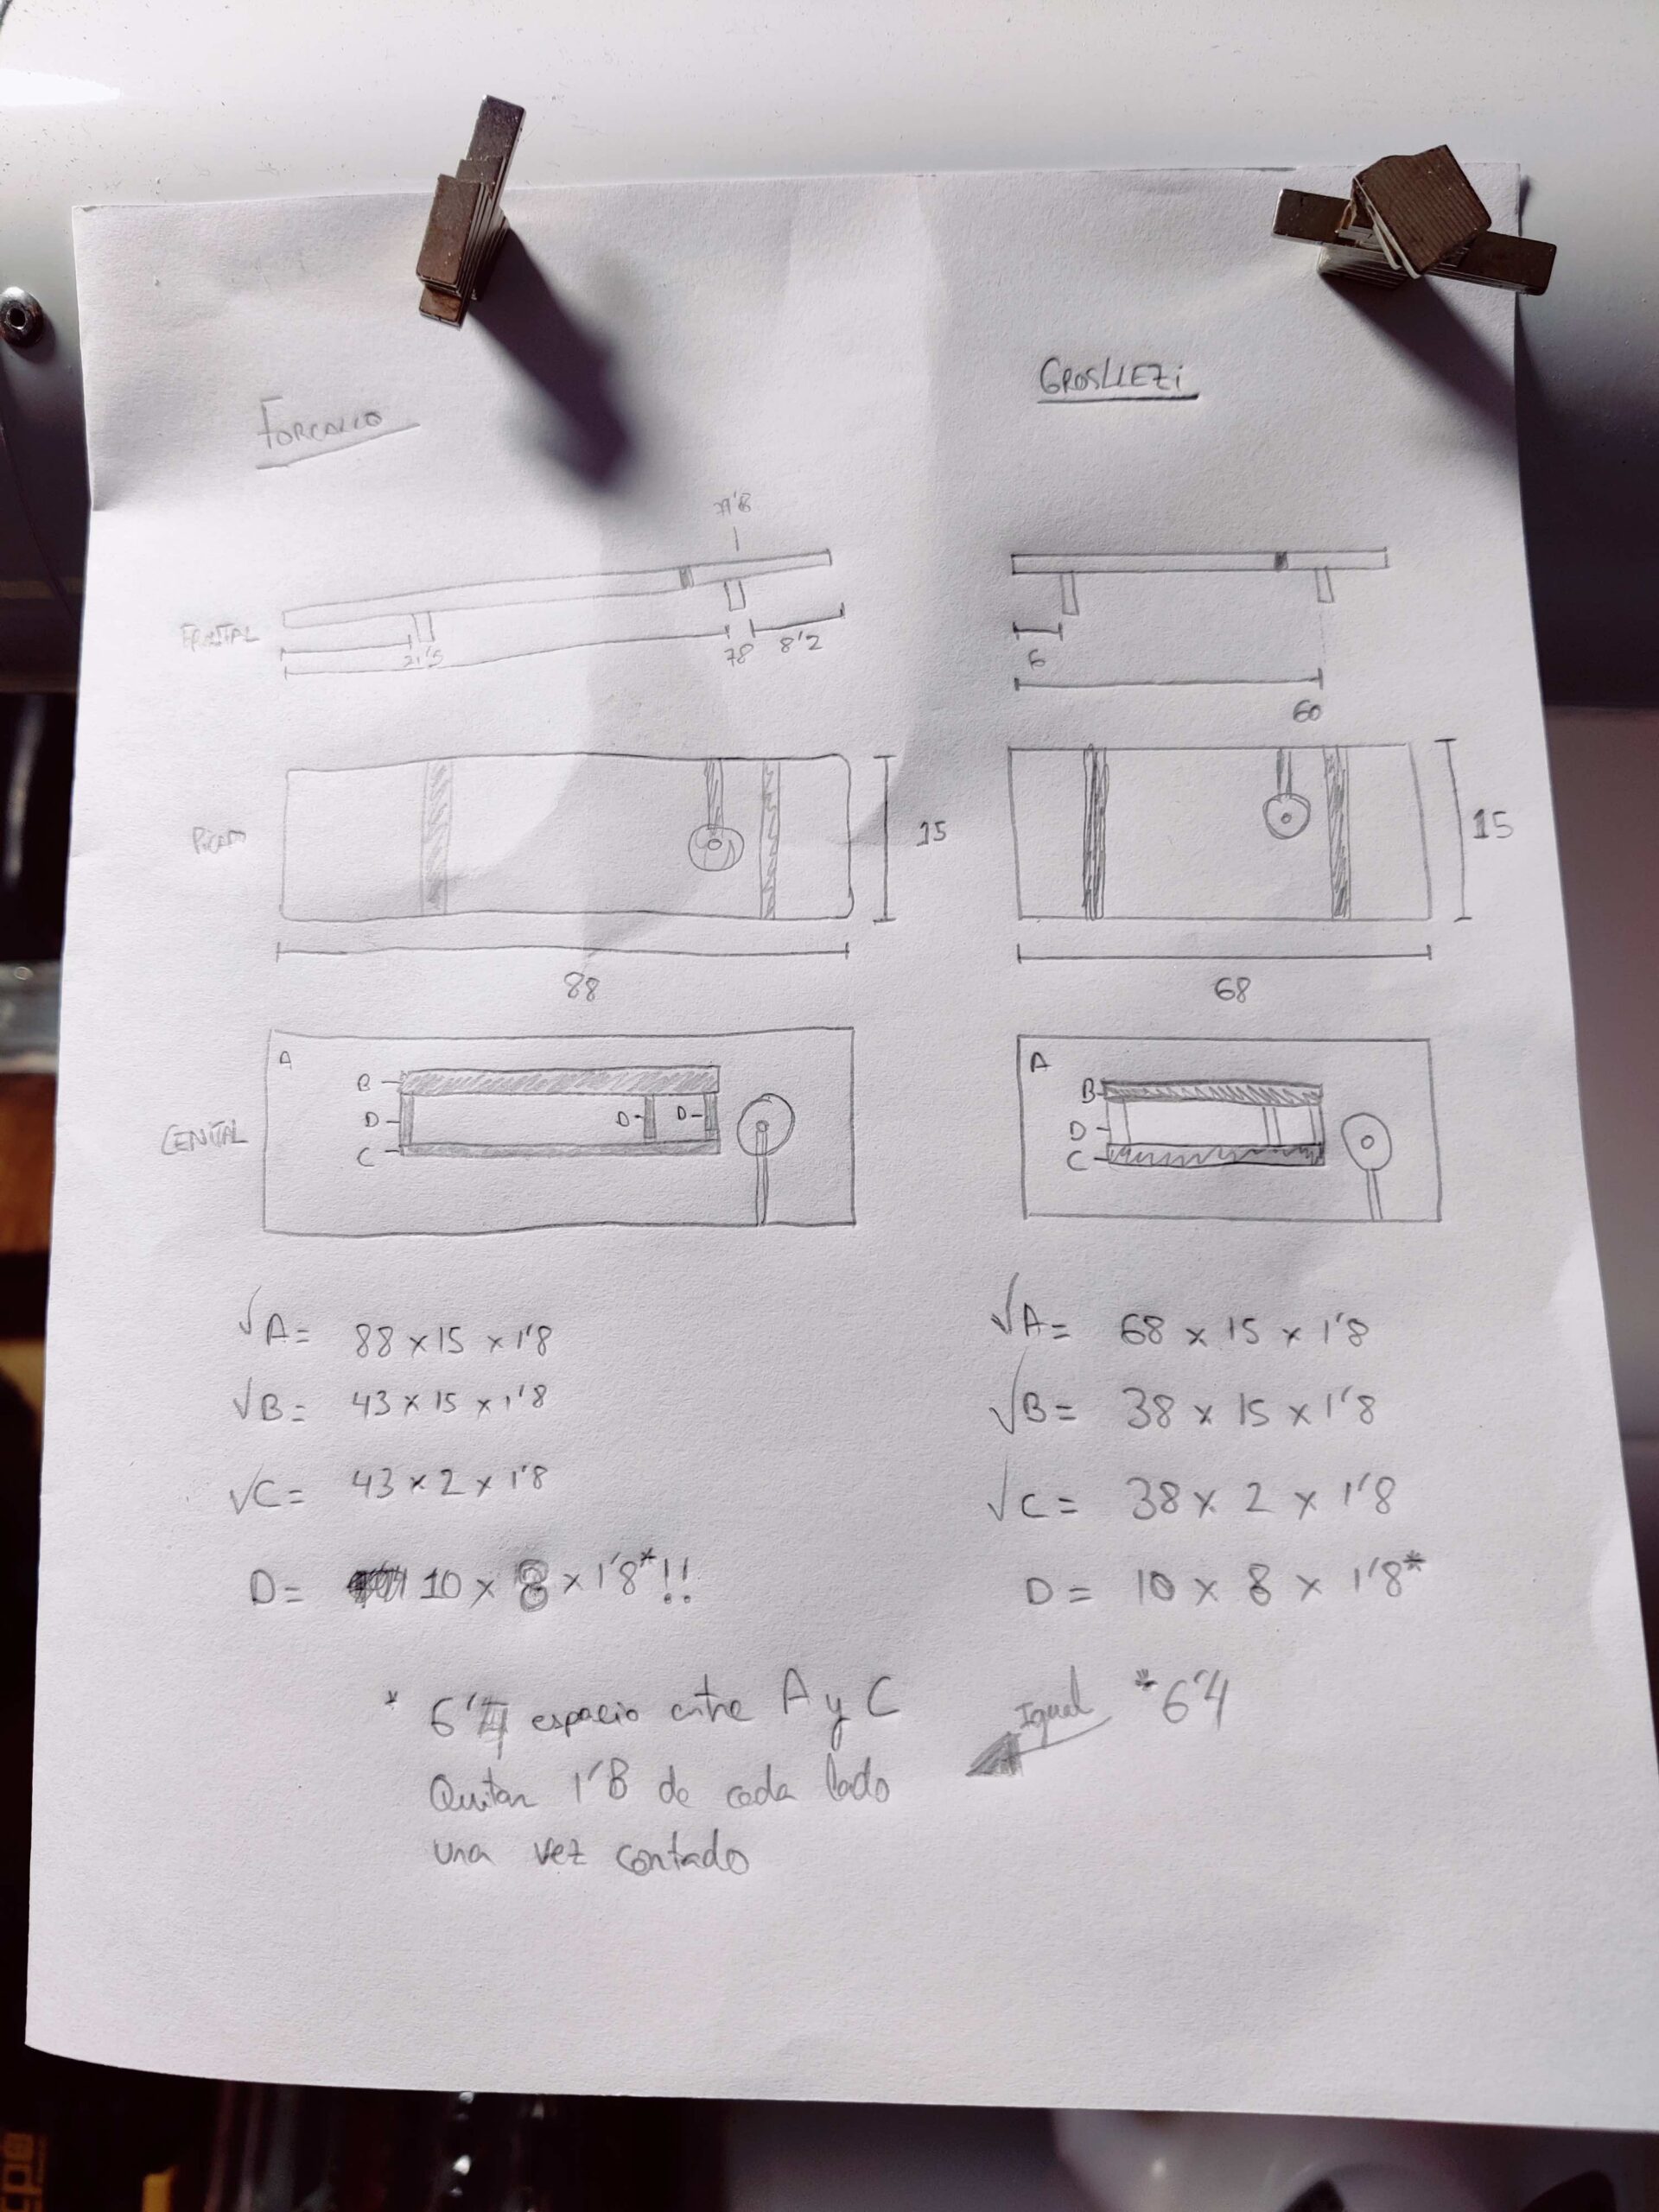 GROSLLEZi
FORCALLO
77'8
21'5
78
8'2
6
60
15
15
88
68
CENITAL
A
B
D
D
D
C
A
B
D
C
√A= 88 x 15 x 1'8
√B= 43 x 15 x 1'8
√C= 43 x 2 x 1'8
D= 10 x 8 x 1'8*!!
* 6'4 espacio entre A y C
Quitar 1'8 de cada lado
una vez contado
√A= 68 x 15 x 1'8
√B= 38 x 15 x 1'8
√C= 38 x 2 x 1'8
D= 10 x 8 x 1'8*
Igual *6'4